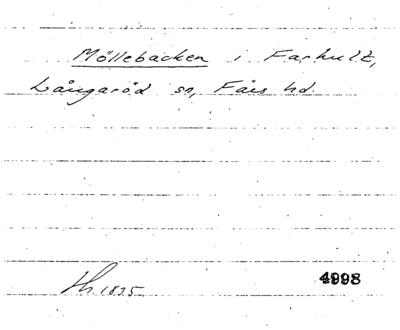 Möllebacken i Farhult,
Långaröd sn, Färs hd.
Th 1835
4998